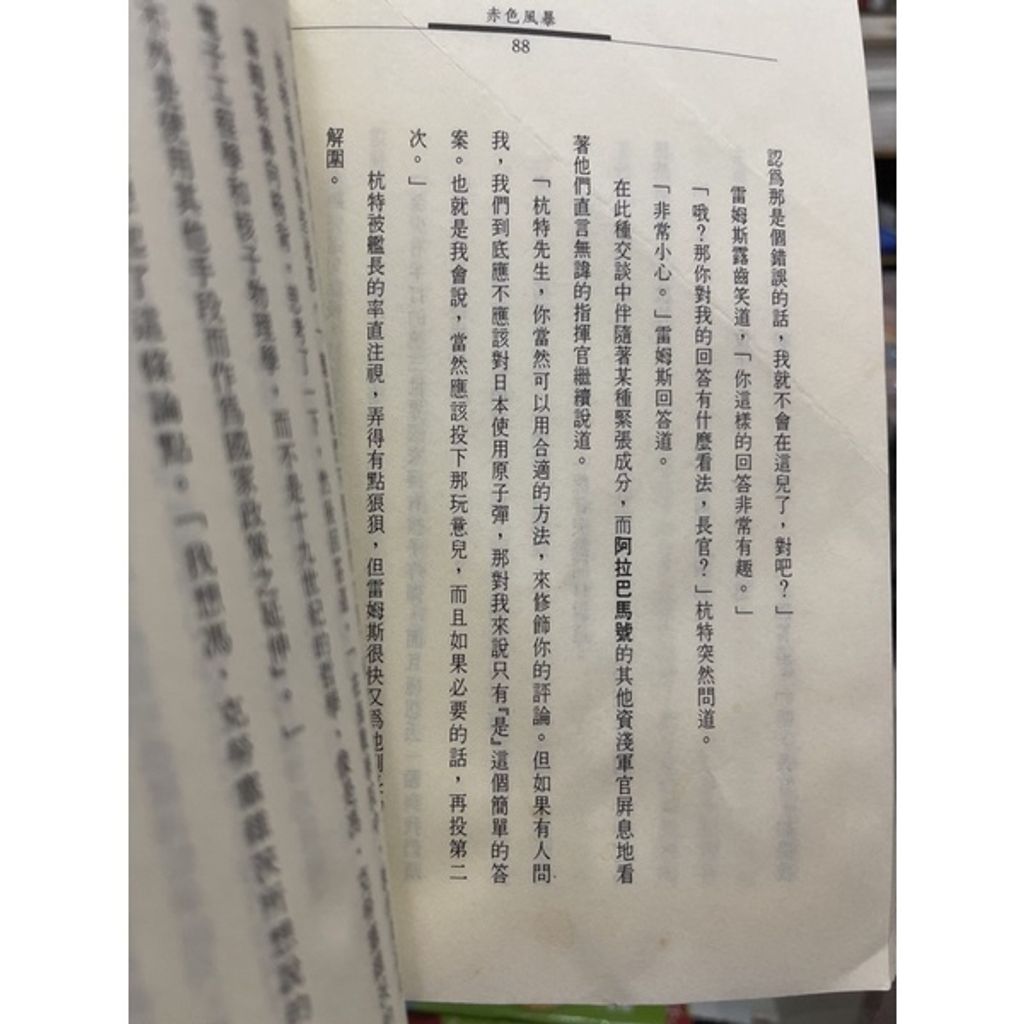 赤色風暴
88
認爲那是個錯誤的話，我就不會在這兒了，對吧？」
雷姆斯露齒笑道，「你這樣的回答非常有趣。」
「哦？那你對我的回答有什麼看法，長官？」杭特突然問道。
「非常小心。」雷姆斯回答道。
在此種交談中伴隨著某種緊張成分，而阿拉巴馬號的其他資淺軍官屏息地看
著他們直言無諱的指揮官繼續說道。
「杭特先生，你當然可以用合適的方法，來修飾你的評論。但如果有人問
我，我們到底應不應該對日本使用原子彈，那對我來說只有『是』這個簡單的答
案。也就是我會說，當然應該投下那玩意兒，而且如果必要的話，再投第二
次。」
杭特被艦長的率直注視，弄得有點狼狽，但雷姆斯很快又爲他
解圍。
電子工程學和核子物理學，而不是十九世紀的哲學
使用其他手段而作爲國家政策之延伸。」
了這條論點。「我想馮．克勞塞維茨所想說的